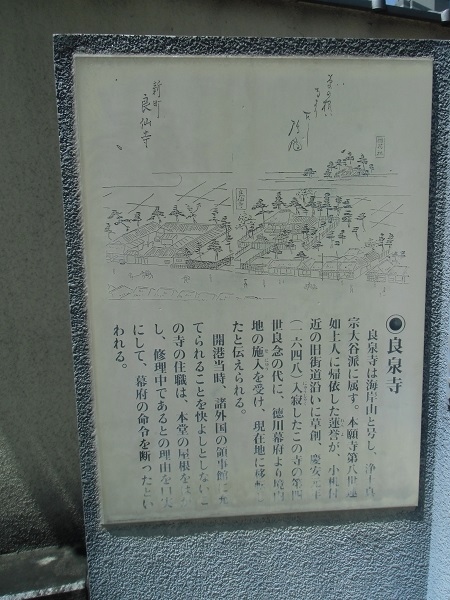 新町
良仙寺
良泉寺
良泉寺は海岸山と号し、浄土真
宗大谷派に属す。本願寺第八世蓮
如上人に帰依した蓮誉が、小机付
近の旧街道沿いに草創、慶安元年
(一六四八)入寂したこの寺の第四
世良念の代に、徳川幕府より境内
地の施入を受け、現在地に移転し
たと伝えられる。
開港当時、諸外国の領事館に充
てられることを快よしとしないこ
の寺の住職は、本堂の屋根をはが
し、修理中であるとの理由を口実
にして、幕府の命令を断ったとい
われる。